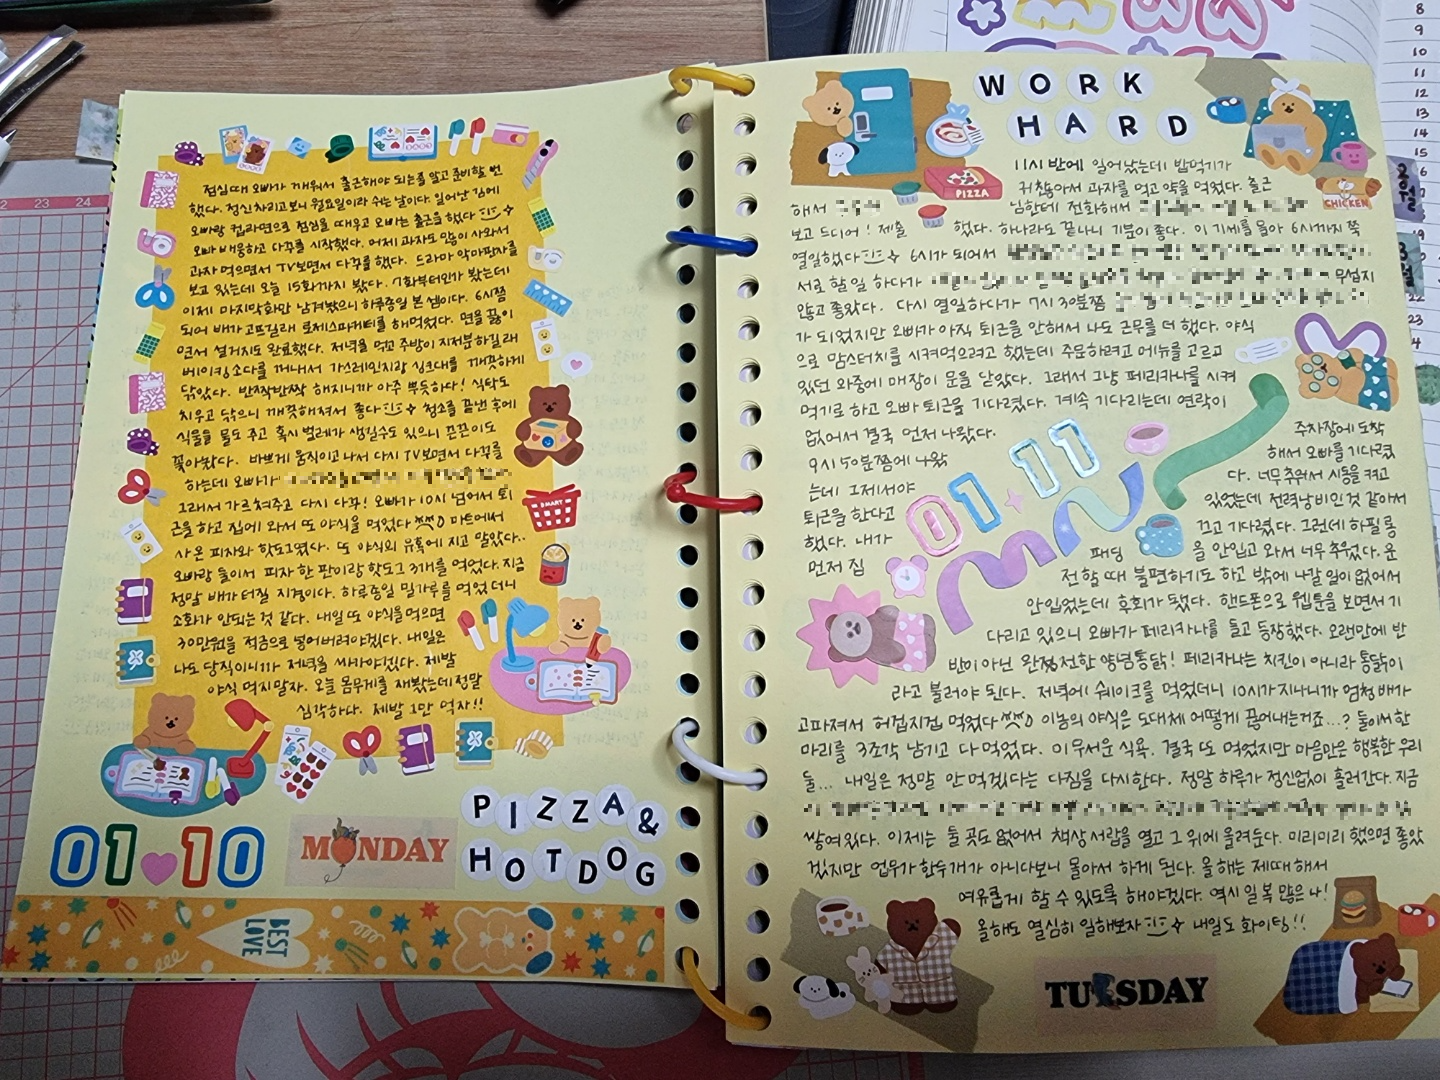 점심때 오빠가 깨워서 출근해야 되는줄 알고 준비할 뻔
했다. 정신차리고보니 월요일이라 쉬는 날이다. 일어난 김에
오빠랑 컵라면으로 점심을 때우고 오빠는 출근을 했다
오빠 배웅하고 다꾸를 시작했다. 어제 과자도 많이 사와서
과자 먹으면서 TV보면서 다꾸를 했다. 드라마 악마판사를
보고 있는데 오늘 15화까지 봤다. 7화부터인가 봤는데
이제 마지막화만 남겨놨으니 하루종일 본 셈이다. 6시쯤
되어 배가 고프길래 로제스파게티를 해먹었다. 면을 끓이
면서 설거지도 완료했다. 저녁을 먹고 주방이 지저분하길래
베이킹소다를 꺼내서 가스레인지랑 싱크대를 깨끗하게
닦았다. 반짝반짝 하지니까 아주 뿌듯하다! 식탁도
치우고 닦으니 깨끗해져서 좋다 청소를 끝낸 후에
식물들 물도 주고 혹시 벌레가 생길수도 있으니 끈끈이도
꽂아놨다. 바쁘게 움직이고 나서 다시 TV보면서 다꾸를
하는데 오빠가
그래서 가르쳐주고 다시 다꾸! 오빠가 10시 넘어서 퇴
근을 하고 집에 와서 또 야식을 먹었다 마트에서
사온 피자와 핫도그였다. 또 야식의 유혹에 지고 말았다..
오빠랑 둘이서 피자 한 판이랑 핫도그 3개를 먹었다. 지금
정말 배가 터질 지경이다. 하루종일 밀가루를 먹었더니
소화가 안되는것 같다. 내일 또 야식을 먹으면
30만원을 적금으로 넣어버려야겠다. 내일은
나도 당직이니까 저녁을 싸가야겠다. 제발
야식 먹지말자. 오늘 몸무게를 재봤는데 정말
심각하다. 제발 1만 먹자!!
01 10
MONDAY
PIZZA &
HOTDOG
BEST LOVE
WORK
HARD
PIZZA
CHICKEN
11시 반에 일어났는데 밥먹기가
귀찮아서 과자를 먹고 약을 먹었다. 출근
해서 님한테 전화해서
보고 드디어! 제출 했다. 하나라도 끝나니 기분이 좋다. 이 기세를 몰아 6시까지 쭉
열일했다 6시가 되어서
서로 할일 하다가 무섭지
않고 좋았다. 다시 열일하다가 7시 30분쯤
가 되었지만 오빠가 아직 퇴근을 안해서 나도 근무를 더 했다. 야식
으로 맘스터치를 시켜먹으려고 했는데 주문하려고 메뉴를 고르고
있던 와중에 매장이 문을 닫았다. 그래서 그냥 페리카나를 시켜
먹기로 하고 오빠 퇴근을 기다렸다. 계속 기다리는데 연락이
없어서 결국 먼저 나왔다.
9시 50분쯤에 나왔
는데 그제서야
퇴근을 한다고
했다. 내가
먼저 집
01 11
주차장에 도착
해서 오빠를 기다렸
다. 너무 추워서 시동을 켜고
있었는데 전력낭비인것 같아서
끄고 기다렸다. 그런데 하필 롱
패딩을 안입고 와서 너무 추웠다. 운
전할 때 불편하기도 하고 밖에 나갈 일이 없어서
안입었는데 후회가 됐다. 핸드폰으로 웹툰을 보면서 기
다리고 있으니 오빠가 페리카나를 들고 등장했다. 오랜만에 반
반이 아닌 완전한 양념통닭! 페리카나는 치킨이 아니라 통닭이
라고 불러야 된다. 저녁에 쉐이크를 먹었더니 10시가 지나니까 엄청 배가
고파져서 허겁지겁 먹었다 이놈의 야식은 도대체 어떻게 끊어내는거죠...? 둘이서 한
마리를 3조각 남기고 다 먹었다. 이 무서운 식욕. 결국 또 먹었지만 마음만은 행복한 우리
둘... 내일은 정말 안먹겠다는 다짐을 다시한다. 정말 하루가 정신없이 흘러간다. 지금
쌓여있다. 이제는 둘 곳도 없어서 책상 서랍을 열고 그 위에 올려둔다. 미리미리 했으면 좋았
겠지만 업무가 한두개가 아니다보니 몰아서 하게 된다. 올해는 제때 해서
여유롭게 할 수 있도록 해야겠다. 역시 일복 많은 나!
올해도 열심히 일해보자 내일도 화이팅!!
TUESDAY